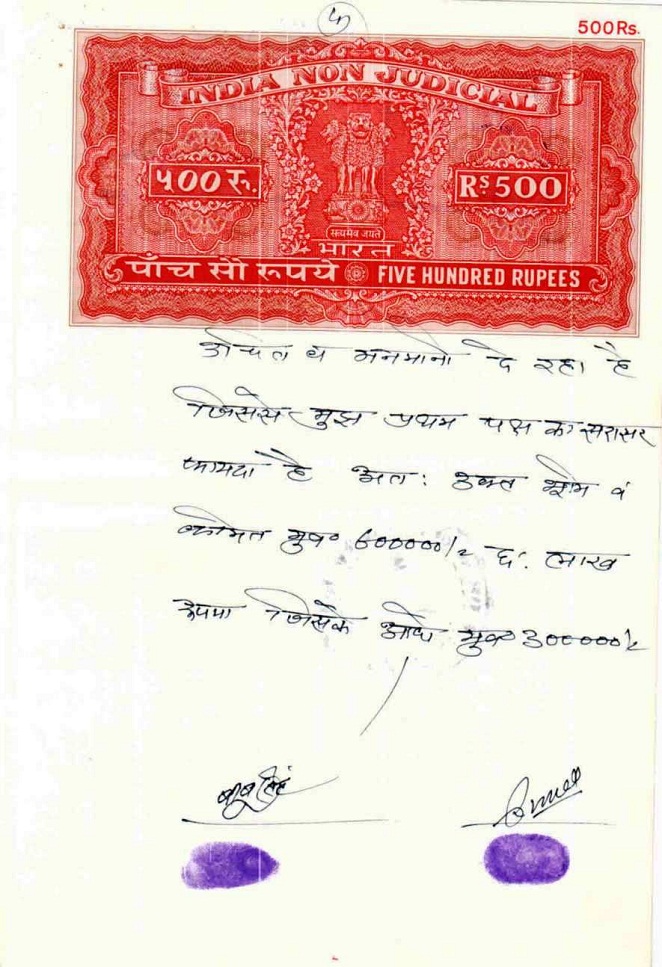 ५
500Rs.
INDIA NON JUDICIAL
५00 रु.
RS. 500
सत्यमेव जयते
भारत
पाँच सौ रूपये FIVE HUNDRED RUPEES
उचित व मनमानी दे रहा है
जिससे मुझ प्रथम पक्ष का सरासर
फायदा है अतः उक्त भूमि व
कीमत मुब० 600000/= छः लाख
रुपया जिसके आधे मुब० 300000/=